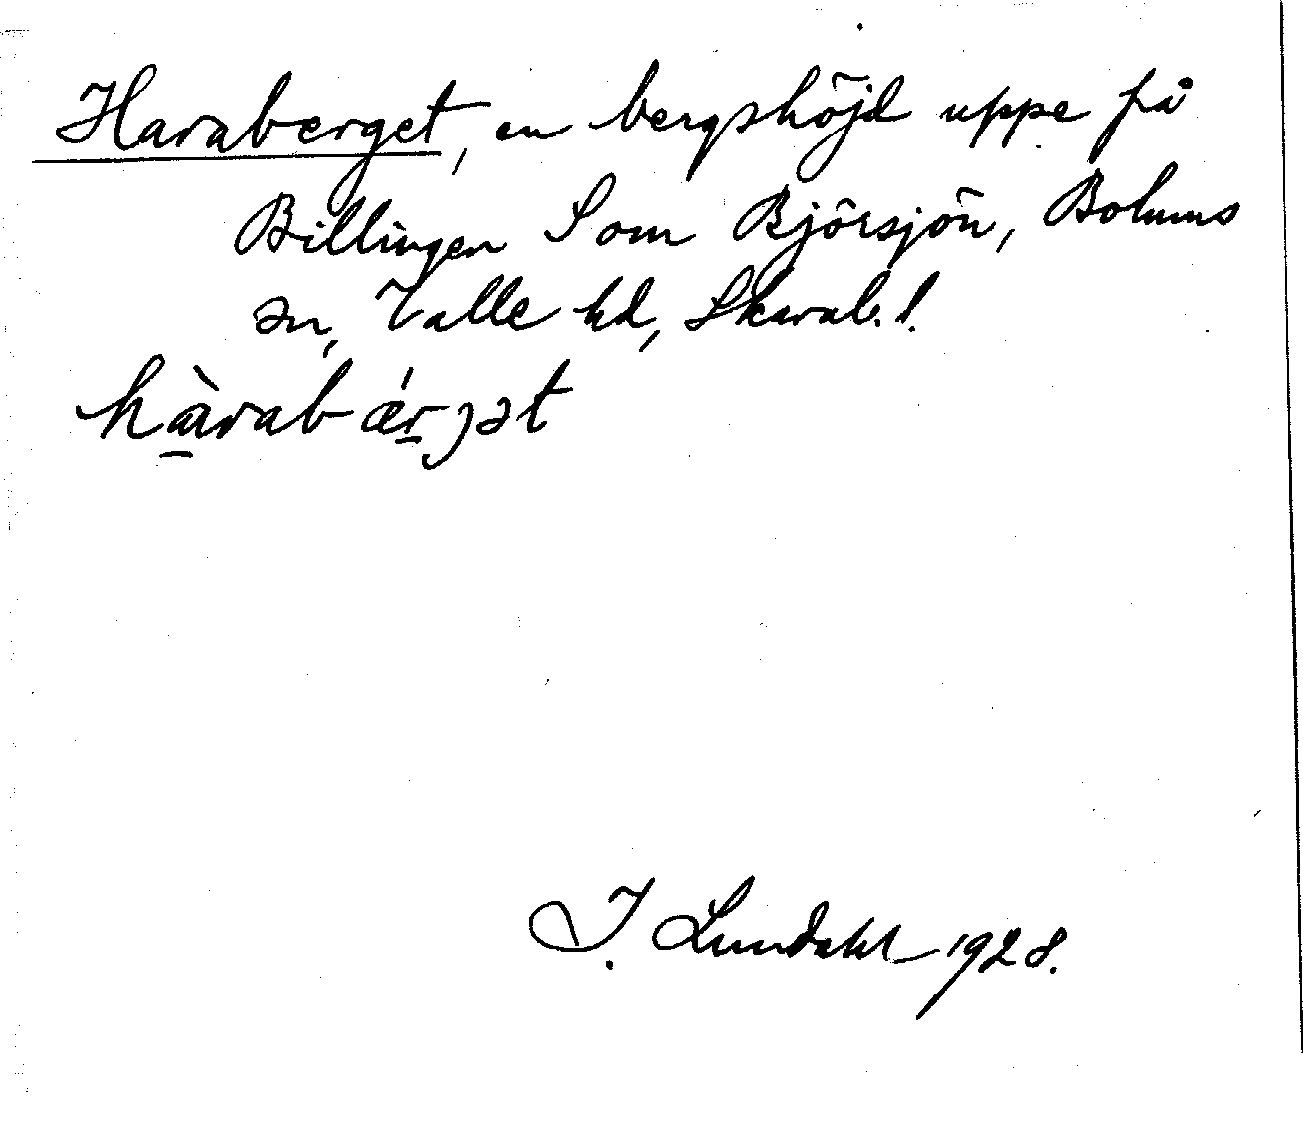 Haraberget, en bergshöjd uppe på
Billingen S om Björsjön, Bolums
sn, Valle hd, Skarab. l.
hàrabǽrjət
I. Lundahl 1928.